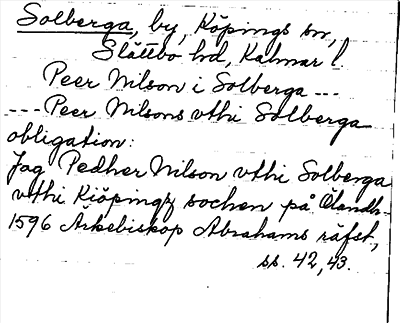 Solberga, by, Köpings sn,
Slättbo hd, Kalmar l.
Peer Nilson i Solberga ---
--- Peer Nilsons vthi Solberga
obligation:
Jag Pedher Nilson vthi Solberga
vthi Kiöpingz sochen på Ölandh
1596 Ärkebiskop Abrahams räfst,
ss. 42, 43.